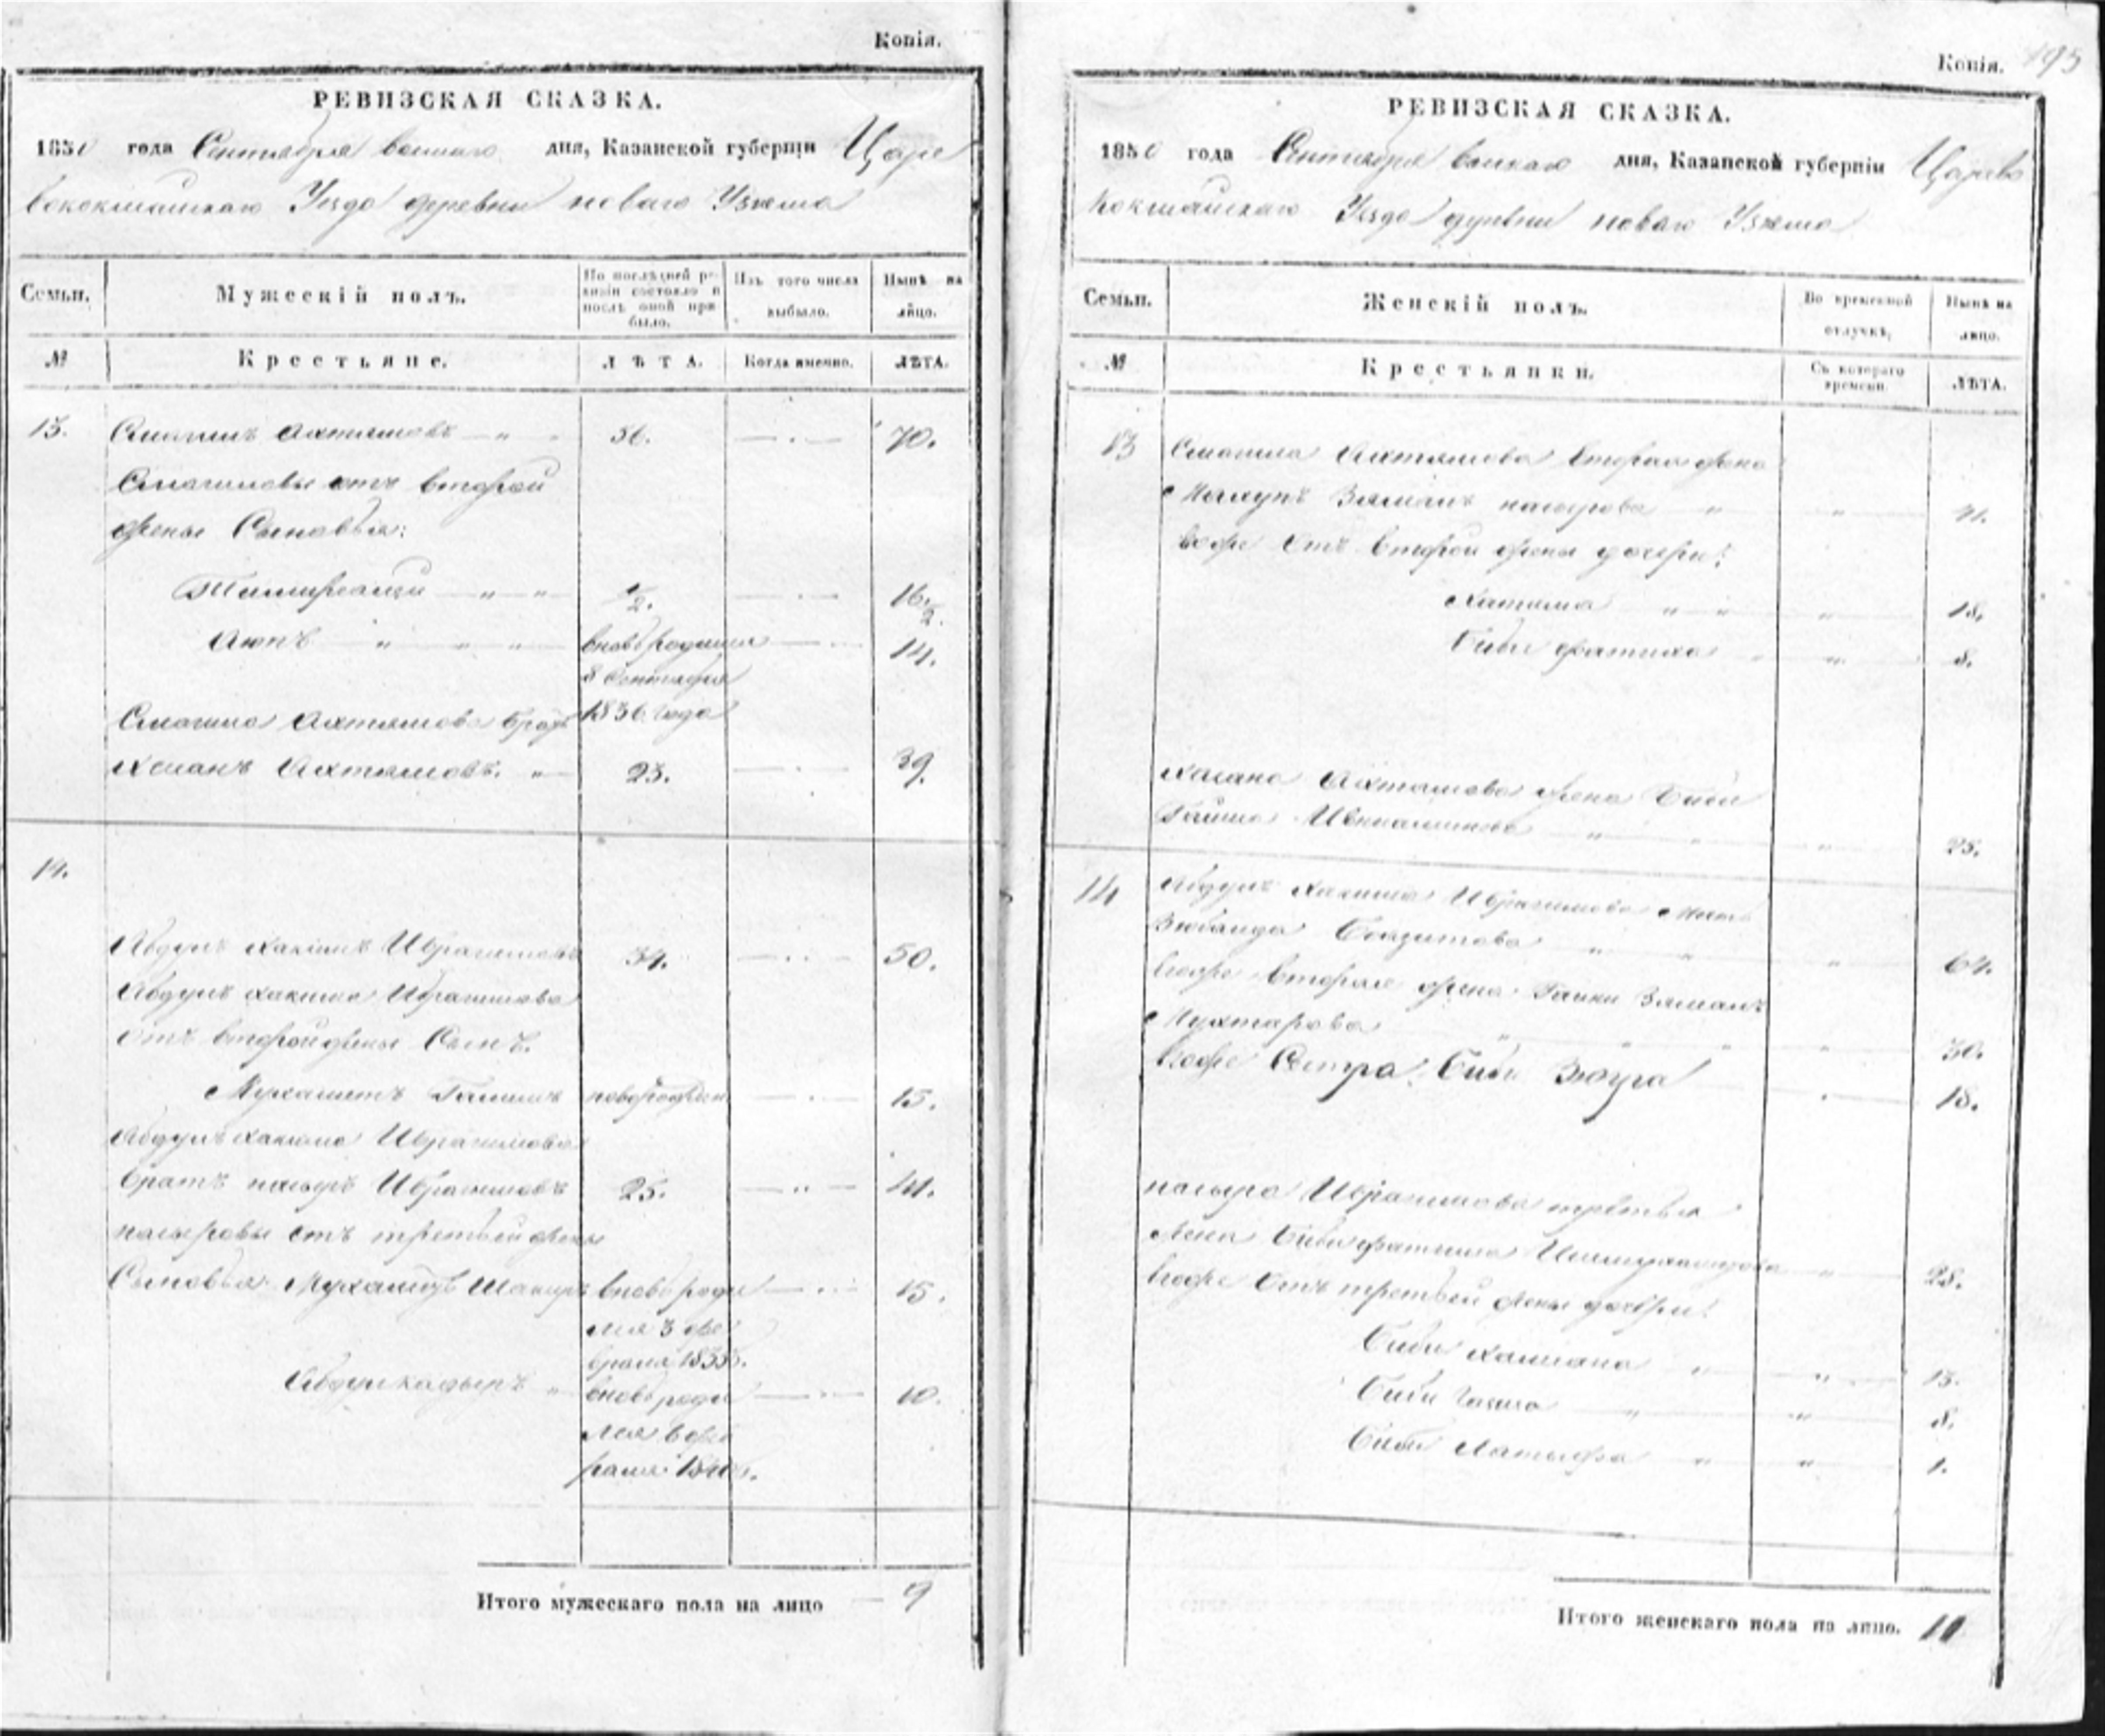 Копія.
РЕВИЗСКАЯ СКАЗКА.
1850 года Сентября дня, Казанской губерніи Царе
вококшайскаго Уезда деревни новаго Узюма
Семьи. Мужескій полъ. По послѣдней ре-
визіи состояло и
послѣ оной при
было. Изъ того числа
выбыло. Нынѣ на
лицо.
№ Крестьяне. ЛѢТА. Когда именно. ЛѢТА.
13. Смагилъ Ахтямовъ 56. 70.
Смагиловы отъ второй
жены Сыновья:
Тимиргали 1/2. 16 1/2.
Аютъ вновь родился 14.
8 Сентября
Смагила Ахтямова братъ 1836 года
Хасанъ Ахтямовъ. 23. 39.
14.
Абдулъ Хакимъ Ибрагимовъ 34. 50.
Абдулъ Хакима Ибрагимова
отъ второй жены Сынъ.
Мухаметъ Галимъ новорожден 15.
Абдулъ Хакима Ибрагимова
братъ насыръ Ибрагимовъ 25. 41.
насыровы отъ третьей жены
Сыновья: Шакиръ вновь роди 15.
лся 3 фе
враля 1835.
Абдулкадыръ вновь роди 10.
лся в фев
раля 1840.
Итого мужескаго пола на лицо 9
Копія. 195
РЕВИЗСКАЯ СКАЗКА.
1850 года Сентября дня, Казанской губерніи Царево
Кокшайскаго Уезда деревни новаго Узюма
Семьи. Женскій полъ. Во временной
отлучкѣ, Нынѣ на
лицо.
№ Крестьянки. Съ котораго
времени. ЛѢТА.
13 Смагила Ахтямова вторая жена
Заманъ насырова 41.
Егоже отъ второй жены дочери:
Хатима 18.
Биби фатиха 8.
Хасана Ахтямова жена Биби
Гайша 25.
14 Абдулъ Хакима Ибрагимова мать
Зюбаида Баязитова 64.
Егоже вторая жена Заманъ
Мухтарова 30.
Егоже Сестра Биби Зюгра 18.
насыра Ибрагимова третья
жена Биби фатима 28.
Егоже отъ третьей жены дочери:
Биби 13.
Биби 8.
Биби Латыфа 1.
Итого женскаго пола на лицо. 11